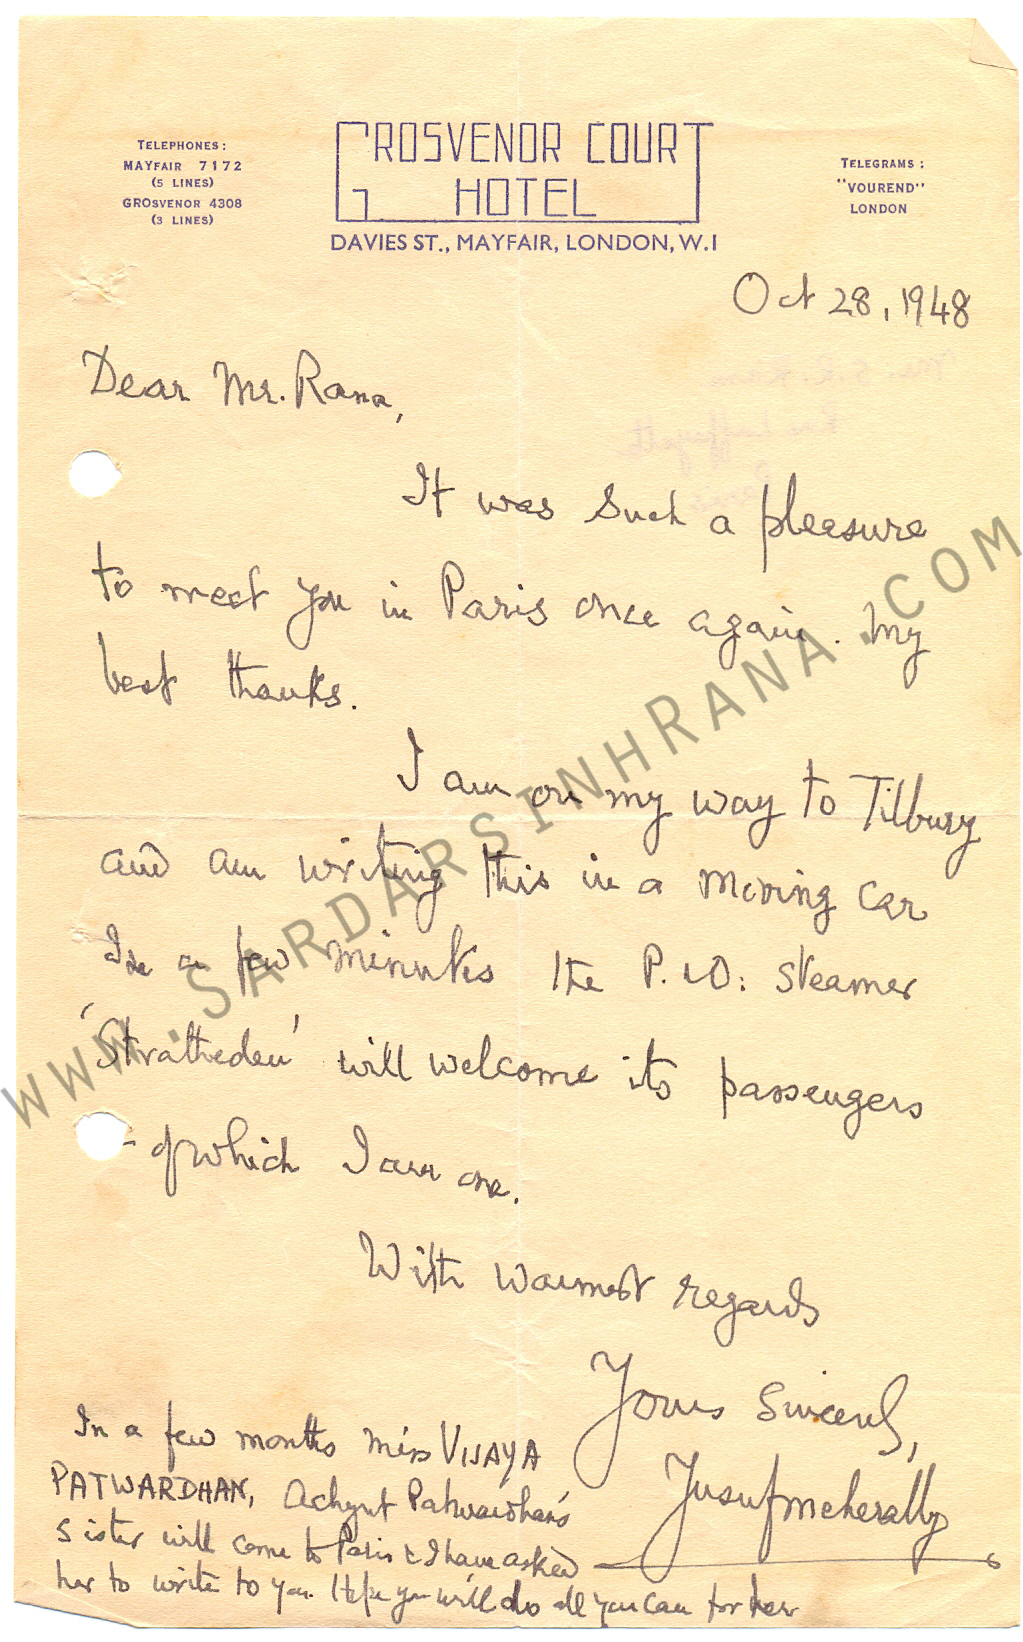 TELEPHONES:
MAYFAIR 7172
(5 LINES)
GROSVENOR 4308
(3 LINES)
GROSVENOR COURT
HOTEL
DAVIES ST., MAYFAIR, LONDON, W.1
TELEGRAMS:
"VOUREND"
LONDON
Oct 28, 1948
Dear Mr. Rana,
It was such a pleasure
to meet you in Paris once again. My
best thanks.
I am on my way to Tilbury
and am writing this in a moving car
In a few minutes the P. & O. Steamer
'Stratheden' will welcome its passengers
- of which I am one.
With warmest regards
Yours Sincerely,
Yusuf Meherally
In a few months Miss VIJAYA
PATWARDHAN, Achyut Patwardhan's
sister will come to Paris & I have asked
her to write to you. Hope you will do all you can for her
WWW.SARDARSINHRANA.COM